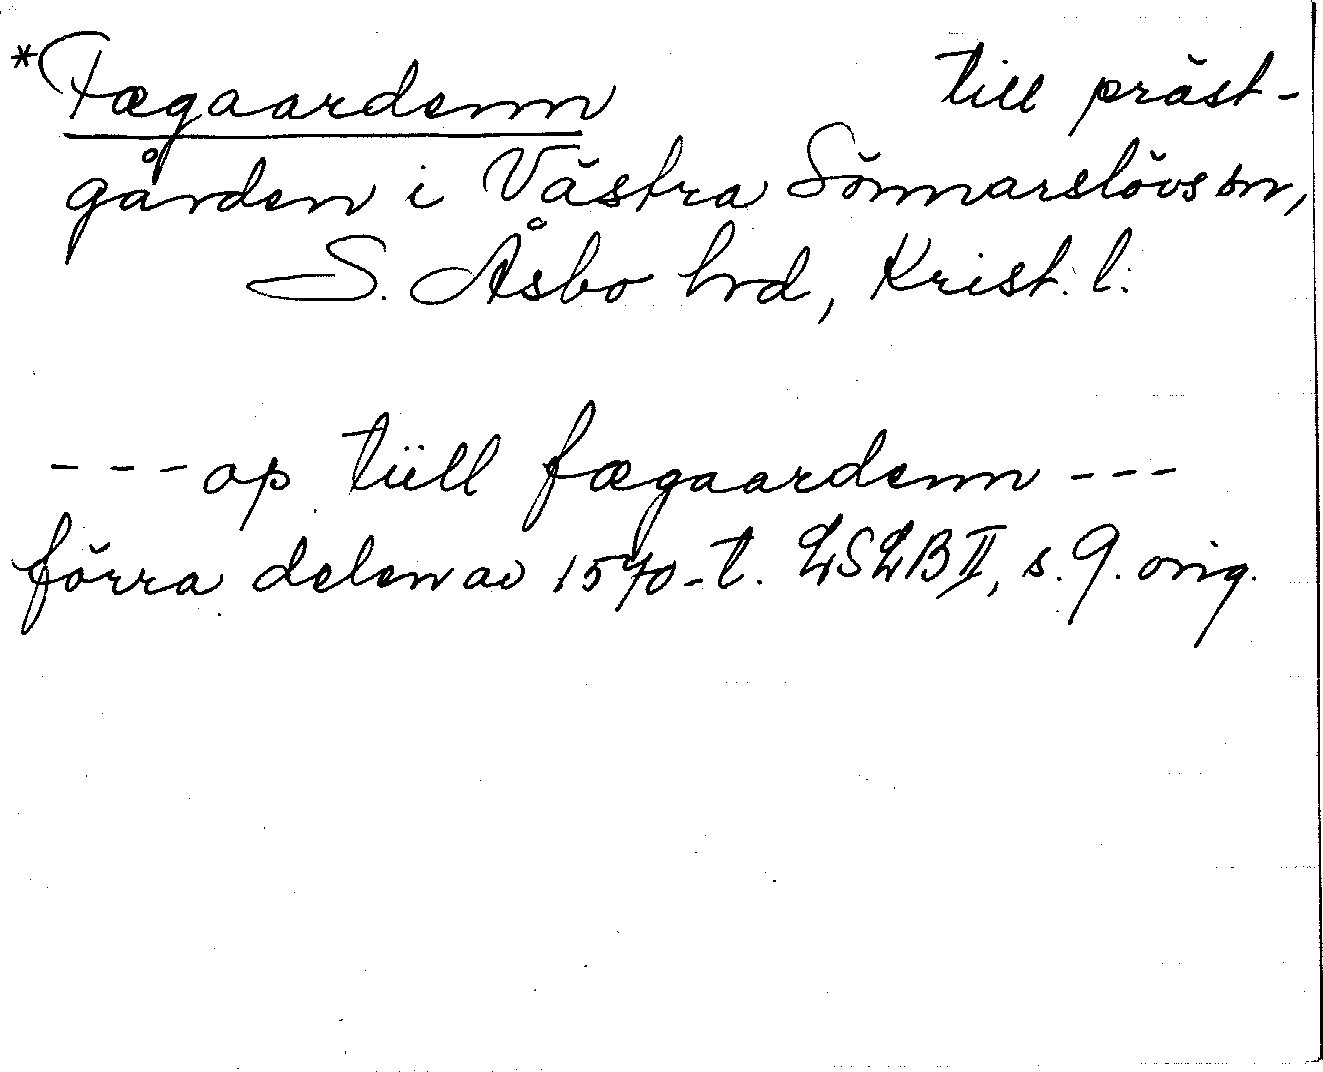 *Fægaardenn till präst-
gården i Västra Sönnarslövs sn,
S. Åsbo hrd, Krist. l.
- - - op tiill fægaardenn - - -
förra delen av 1570-t. LSLB II, s. 9. orig.